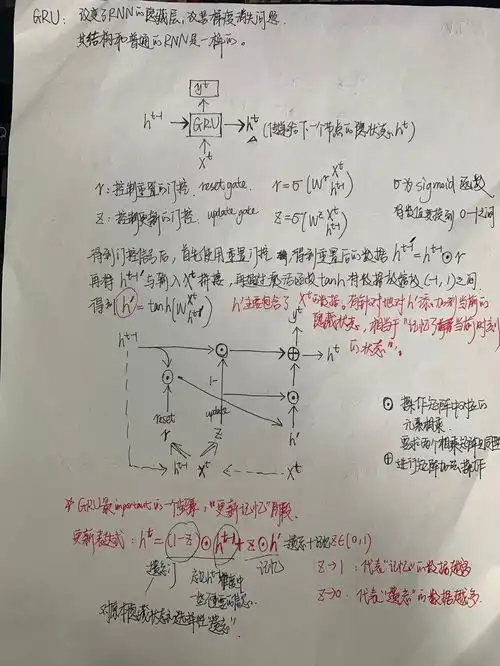 GRU: 改变了RNN的隐藏层,改善梯度消失问题.
其结构和普通的RNN是一样的。
y^t
h^{t-1} → GRU → h^t (传递给下一个节点的隐状态h^t)
x^t
r:控制重置的门控. reset gate. r=σ(W^r x^t h^{t-1}) σ为sigmoid函数
z:控制更新的门控. update gate z=σ(W^z x^t h^{t-1}) 将数值变换到0-1之间
得到门控信号后,首先使用重置门控 得到重置后的数据 h^{t-1}' = h^{t-1} ⊙ r
再将 h^{t-1}' 与输入 x^t 拼接,再通过激活函数tanh将数据放缩放(-1, 1)之间.
得到 h' = tanh(W x^t h^{t-1}') h'主要包含了 x^t 的数据。有针对地对h'添加到当前的
隐藏状态,相当于"记忆了当前时刻
的状态"。
y^t
h^{t-1}
⊙ ⊕ → h^t
⊙ 1- ⊙
reset update
r z h'
h^{t-1} x^t x^t
⊙ 操作矩阵中对应的
元素相乘.
要求两个相乘矩阵
⊕ 进行矩阵加法操作
* GRU最important的一个步骤,"更新记忆"阶段.
更新表达式: h^t = (1-z) ⊙ h^{t-1} + z ⊙ h' 遗忘+记忆 z∈(0,1)
遗忘门 记忆
z→1 : 代表"记忆"的数据越多
z→0 代表"遗忘"的数据越多.
对原本隐藏状态的选择性"遗忘".